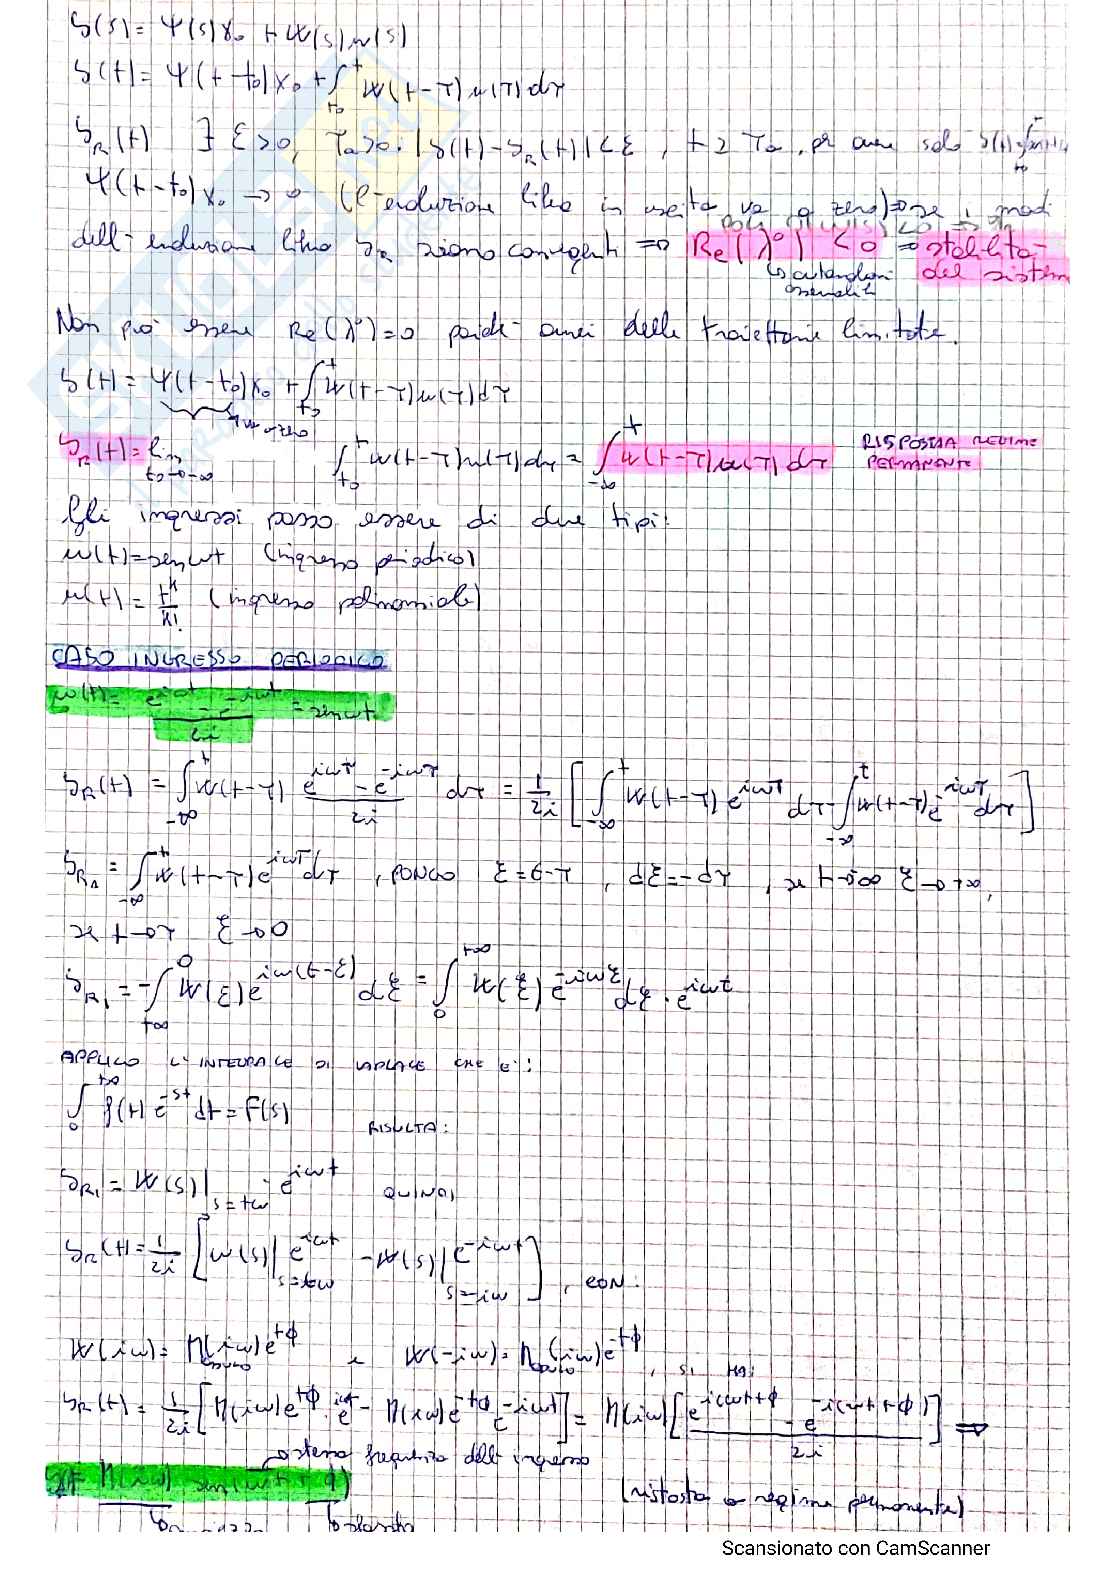 y(s) = Ψ(s)x₀ + W(s)u(s)
y(t) = Ψ(t-t₀)x₀ + ∫_{t₀}^{t} W(t-τ)u(τ)dτ
y_R(t) ∃ ε>0, T_a>0: |y(t) - y_R(t)| < ε, t ≥ T_a, per avere solo
Ψ(t-t₀)x₀ → 0 (l'evoluzione libera in uscita va a zero) ⇒ se i modi
dell'evoluzione libera siano convergenti ⇒ Re(λ°) < 0 ⇒ stabilità
↳ autovalori del sistema
osservabili
Non può essere Re(λ°)=0 poiché avrei delle traiettorie limitate.
y(t) = Ψ(t-t₀)x₀ + ∫_{t₀}^{t} W(t-τ)u(τ)dτ
va a zero
y_R(t) = lim_{t₀→-∞} ∫_{t₀}^{t} W(t-τ)u(τ)dτ = ∫_{-∞}^{t} W(t-τ)u(τ)dτ RISPOSTA REGIME
PERMANENTE
Gli ingressi posso essere di due tipi:
u(t)=senωt (ingresso periodico)
u(t) = t^k/k! (ingresso polinomiale)
CASO INGRESSO PERIODICO
u(t) = (e^{iωt} - e^{-iωt})/2i = senωt
y_R(t) = ∫_{-∞}^{t} W(t-τ) (e^{iωτ} - e^{-iωτ})/2i dτ = 1/2i [∫_{-∞}^{t} W(t-τ)e^{iωτ}dτ - ∫_{-∞}^{t} W(t-τ)e^{-iωτ}dτ]
y_{R1} = ∫_{-∞}^{t} W(t-τ)e^{iωτ}dτ, PONGO ξ=t-τ, dξ=-dτ, se t→∞ ξ→+∞,
se t→τ ξ→0
y_{R1} = -∫_{+∞}^{0} W(ξ)e^{iω(t-ξ)}dξ = ∫_{0}^{+∞} W(ξ)e^{-iωξ}dξ · e^{iωt}
APPLICO L'INTEGRALE DI LAPLACE CHE E':
∫_{0}^{+∞} f(t)e^{-st}dt = F(s)
RISULTA:
y_{R1} = W(s)|_{s=iω} e^{iωt} QUINDI
y_R(t) = 1/2i [W(s)|_{s=iω} e^{iωt} - W(s)|_{s=-iω} e^{-iωt}], CON:
W(iω) = M(iω)e^{+φ} e W(-iω) = M(iω)e^{-+φ}, SI HA:
y_R(t) = 1/2i [M(iω)e^{+φ}·e^{iωt} - M(iω)e^{-+φ}e^{-iωt}] = M(iω)[(e^{i(ωt+φ)} - e^{-i(ωt+φ)})/2i] ⇒
stessa frequenza dell'ingresso
M(iω) sen(ωt + φ) (risposta a regime permanente)
Scansionato con CamScanner